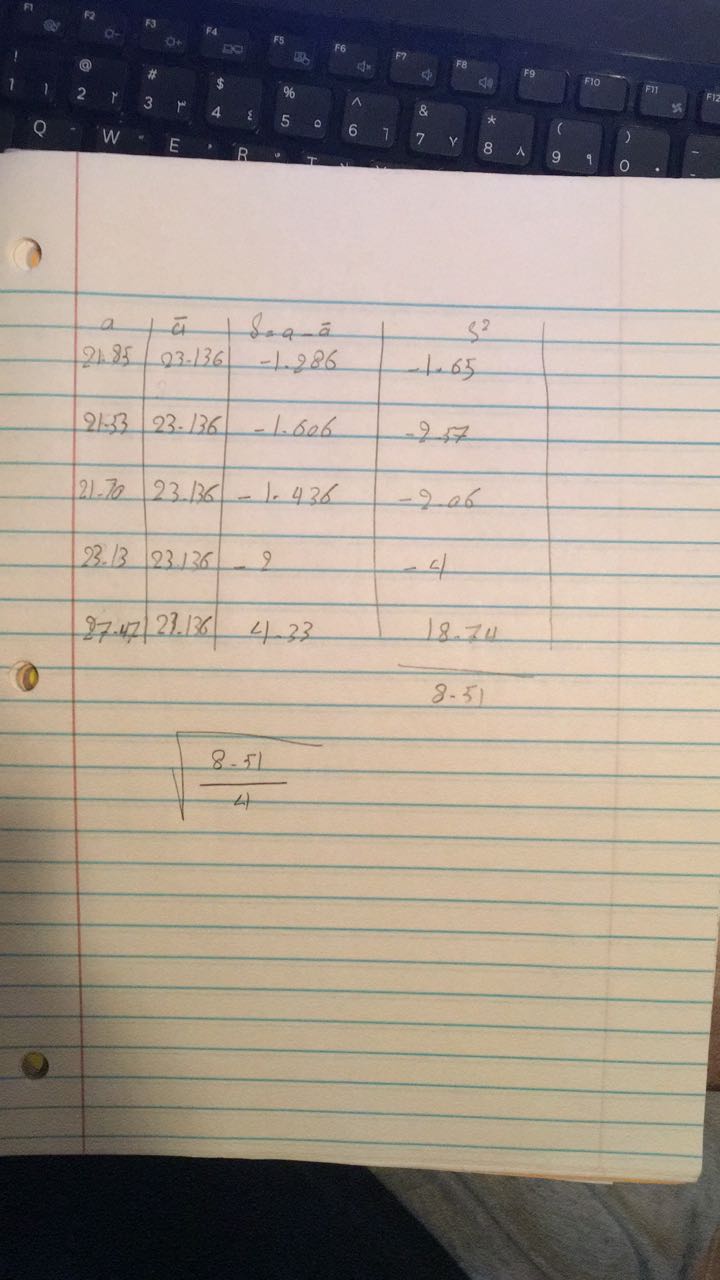 F1 F2 F3 F4 F5 F6 F7 F8 F9 F10 F11 F12
! @ # $ % ^ & * ( ) _
1 ١ 2 ٢ 3 ٣ 4 ٤ 5 ٥ 6 ٦ 7 ٧ 8 ٨ 9 ٩ 0 ٠ -
Q W E R T
a ā δ = a - ā δ²
21.85 23.136 -1.286 -1.65
21.53 23.136 -1.606 -2.57
21.70 23.136 -1.436 -2.06
23.13 23.136 -2 -4
27.47 23.136 4.33 18.74
8.51
√ 8.51
4